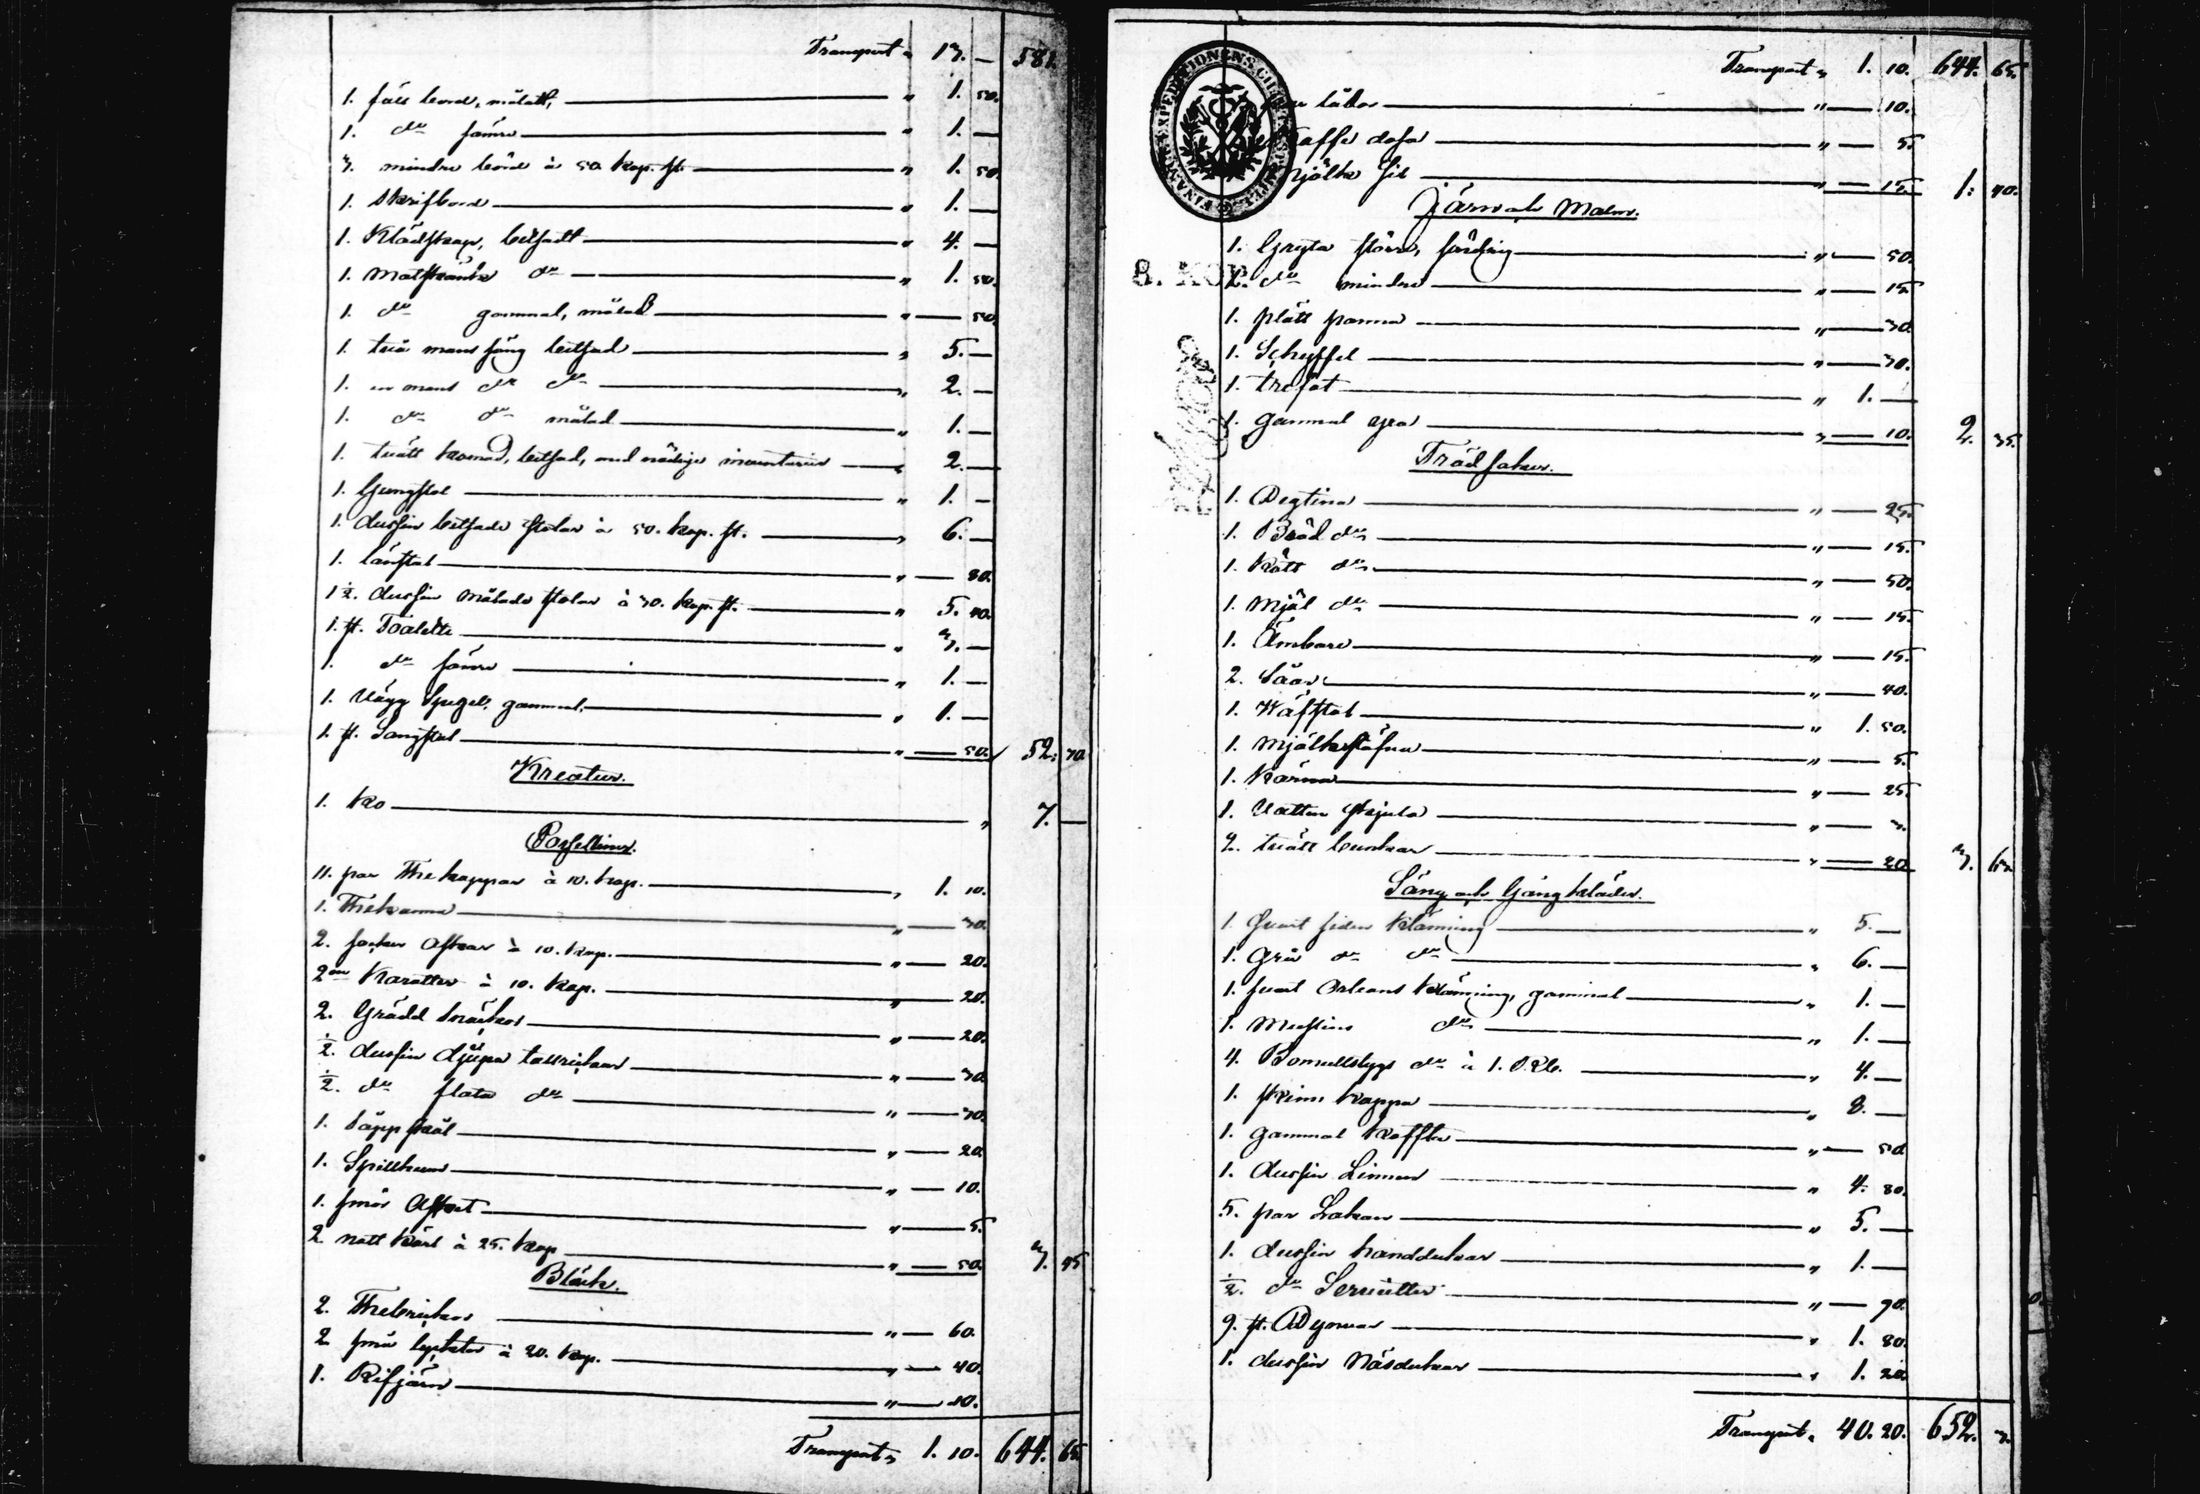 Transport „ 13. — 581.
1. fäll bord, måladt, „ 1. 50.
1. do sämre „ 1. —
3. mindre bord à 50. kop. st. „ 1. 50.
1. Skrifbord „ 1. —
1. Klädskap, betsadt „ 4. —
1. Matskänk do „ 1. 50.
1. do gammal, målad „ — 50.
1. två mans säng betsad „ 5. —
1. en mans do do „ 2. —
1. do do målad „ 1. —
1. tvätt komod, betsad, med nödige inventarier „ 2. —
1. Gungstol „ 1. —
1. dussin betsade stolar à 50. kop. st. „ 6. —
1. länstol „ — 80.
1½. dussin målade stolar à 30. kop. st. „ 5. 40.
1. st. Toalette „ 3. —
1. do sämre „ 1. —
1. Vägg Spegel, gammal, „ 1. —
1. st. Långstol „ — 50. 52. 70.
Kreatur.
1. ko „ 7. —
Posselliner.
11. par Thekoppar à 10. kop. „ 1. 10.
1. Thekanna „ — 30.
2. socker Askar à 10. kop. „ — 20.
2ne Karotter à 10. kop. „ — 20.
2. Grädd snäckor „ — 20.
½. dussin djupa tallrickar „ — 30.
½. do flata do „ — 30.
1. Såpp skål „ — 20.
1. Spillkum „ — 10.
1. smör Asiett „ — 5.
2. natt kärl à 25. kop „ — 50. 3. 45.
Bläck.
2. Thebrickor „ — 60.
2. små lycktor à 20. kop. „ — 40.
1. Rifjärn „ — 10.
Transport „ 1. 10. 644. 65.
Transport „ 1. 10. 644. 65.
lådor „ — 10.
Kaffe dosa „ — 5.
mjölk sil „ — 15. 1. 40.
Järn och Malm.
1. Gryta större, färding „ — 50.
8. KOP.
1. do mindre „ — 15.
1. plätt panna „ — 30.
1. Schyffel „ — 30.
1. trefot „ 1. —
1. gammal yxa „ — 10. 2. 35.
Trädsaker.
1. Degtina „ — 25.
1. Bröd do „ — 15.
1. Kött do „ — 50.
1. Mjöl do „ — 15.
1. Ämbare „ — 15.
2. Såar „ — 40.
1. Wäfstol „ 1. 50.
1. mjölkstäfva „ — 5.
1. Kärna „ — 25.
1. Vatten skjula „ — 3.
2. tvätt bunkar „ — 20. 3. 63.
Säng och Gångkläder.
1. svart siden Klänning „ 5. —
1. Grå do do „ 6. —
1. svart Orleans Klänning, gammal „ 1. —
1. Musslins do „ 1. —
4. Bomullstygs do à 1. Rb. „ 4. —
1. skinn kappa „ 8. —
1. gammal kofta „ — 50.
1. dussin Linnen „ 4. 80.
5. par Lakan „ 5. —
1. dussin handdukar „ 1. —
½. do Servietter „ — 90.
9. st. Dynvar „ 1. 80.
1. dussin Näsdukar „ 1. 20.
Transport „ 40. 20. 652. 3.